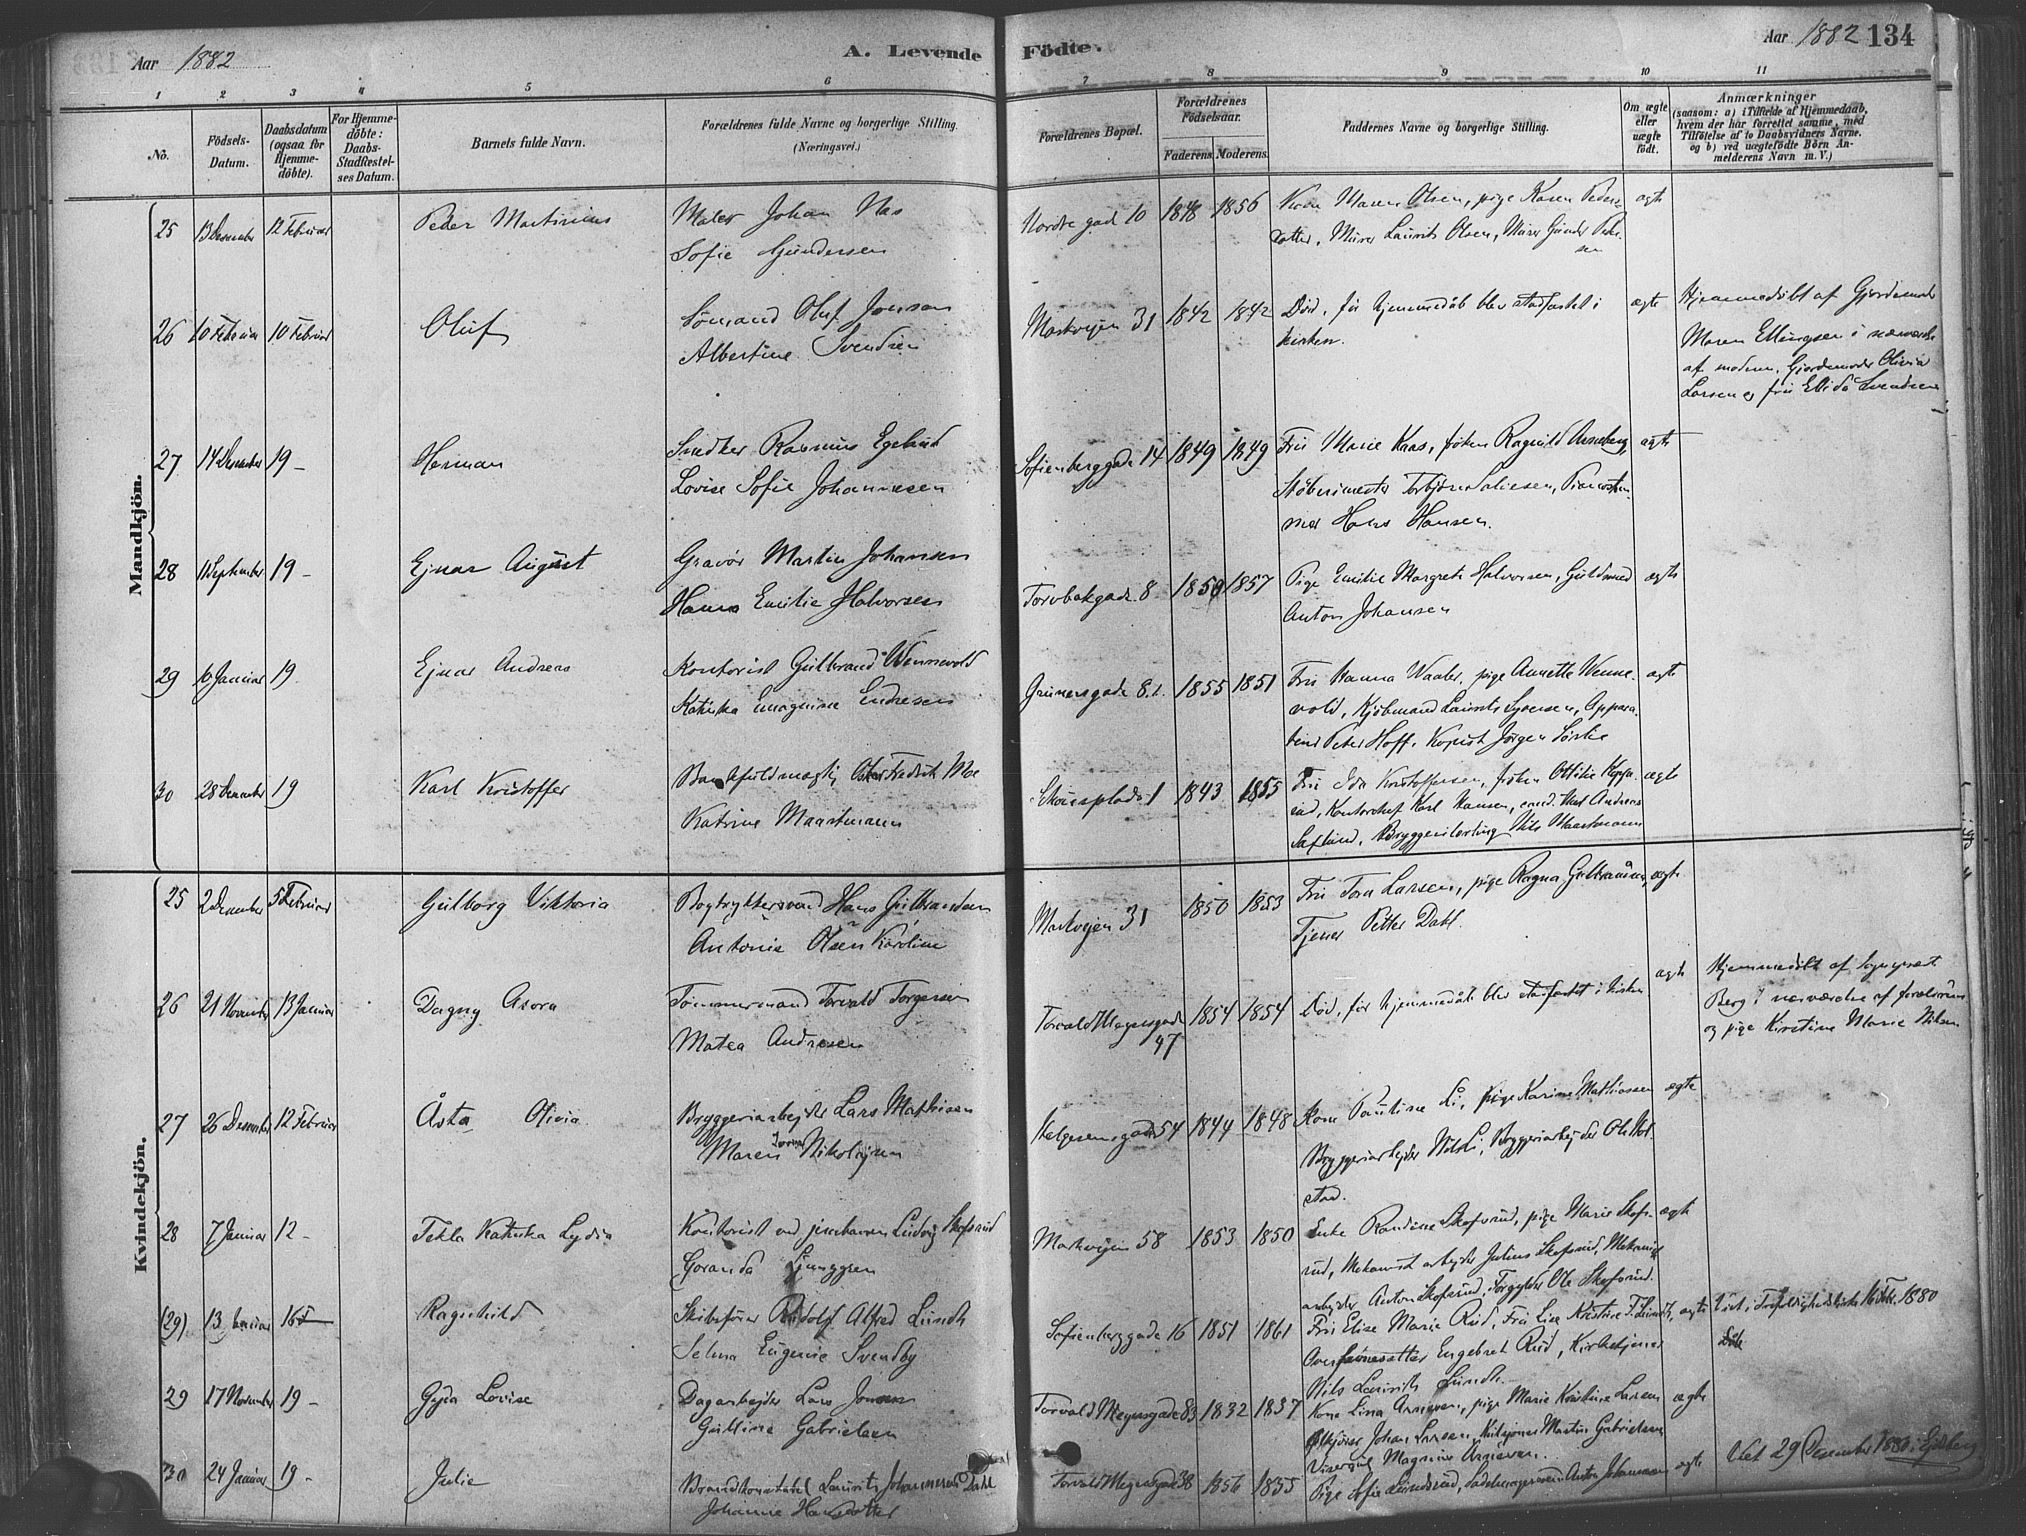 Aar 1882
A. Levende Födte.
Aar 1882 134
1 2 3 4 5 6 7 8 9 10 11
No.
Födsels-Datum.
Daabsdatum (ogsaa for Hjemme-döbte).
For Hjemme-döbte: Daabs-Stadfæstel-ses Datum.
Barnets fulde Navn.
Forældrenes fulde Navne og borgerlige Stilling. (Næringsvei.)
Forældrenes Bopæl.
Forældrenes Födselsaar.
Faderens. Moderens.
Faddernes Navne og borgerlige Stilling.
Om ægte eller uægte födt.
Anmærkninger
(saasom: a) i Tilfælde af Hjemmedaab,
hvem der har forrettet samme, med
Tilföielse af to Daabsvidners Navne.
og b) ved uægtefödte Börn An-
melderens Navn m. V.)
Mandkjön.
25 13 Desember 12 Februar Peder Martinius Maler Johan Nas
Sofie Gundersen
Nordre gade 10 1848 1856 Kone Maren Olsen, pige Karen Peders-
datter, Murer Laurits Olsen, Murer Gunder Peder-
sen
ægte
26 10 Februar 10 Februar Oluf Sømand Oluf Jonsson
Albertine Svendsen
Markvejen 31 1842 1842 Død, før hjemmedåb blev stadfæstet i
kirken.
ægte
Hjemmedøbt af Gjordemoder
Maren Ellingsen i nærværelse
af moderen, Gjordemoder Olivia
Larsen og fru Elida Svendsen
27 14 Desember 19 - Herman Snedker Rasmus Egelund
Lovise Sofie Johannesen
Sofienberggade 14 1849 1849 Fru Marie Kaas, frøken Ragnild Anneberg,
Støberimester Torbjørn
Hans Hansen.
ægte
28 11 September 19 - Ejnar August Gravør Martin Johansen
Hanna Emilie Halvorsen
Torvbakgade 8 1850 1857 Pige Emilie Margrete Halvorsen, Guldsmed
Anton Johansen
ægte
29 16 Januar 19. Ejnar Andreas Kontorist Gulbrand Wennevold
Katinka Emagnine Endresen
Grunersgade 8. 1855 1851 Fru Hanna Waaler, pige Annette Wenne-
vold, Kjøbmand Laurits Syversen,
Peter Hoff, Kopist Jørgen
ægte
30 28 Desember 19 Karl Kristoffer Bankfuldmægtig Fredrik Moe
Katrine Maartmann
Skousplads 1 1843 1855 Fru Ida Kristoffersen, frøken Ottilie
Kontorchef Karl Hansen, cand. Karl Andreas
Bryggerilærling Nils Maartmann
ægte
Kvindekjön.
25 2 Desember 5 Februar Gulborg Viktoria Bogtrykkersvend Hans Gulbrandsen
Antonie Olsen Karoline
Markvejen 31 1850 1853 Fru Tora Larsen, pige Ragna
Tjener Petter Dahl.
ægte
26 21 November 13 Januar Dagny Asora Tømmermand Torvald Torgersen
Matea Andresen
Torvald Meyersgade
47
1854 1854 Død, før hjemmedåb blev stadfæstet i kirken
ægte
Hjemmedøbt af Sogneprest
Berg i nærværelse af forældrene
og pige Kirstine Marie Nilsen
27 26 Desember 12 Februar Åsta Olivia Bryggeriarbejder Lars Mathisen
Maren Nikolajsen
Helgesensgade 54 1844 1848 Kone Pauline Li, pige Karine Mathiassen
Bryggeriarbejder Nils Li, Bryggeriarbejder Ole Hol-
stad.
ægte
28 7 Januar 12 - Tekla Katinka Lydia Kontorist ved jernbanen Ludvig Skofsrud
Goranda Ljunggren
Markvejen 58 1853 1850 Enke Randine Skofsrud, pige Marie Skofs-
rud, Mekanisk arbejder Julius Skofsrud, Mekanisk
arbejder Anton Skofsrud, Forgylder Ole Skofsrud.
ægte
(29) 13 Januar 16 Ragnhild Skibsfører Rudolf Alfred Lundh
Selma Eugenie Svendby
Sofienberggade 16 1851 1861 Fru Elise Marie Rud, Fru Lise Kristine F. Lundh,
Engebret Rud, Kirketjener
Nils Laurits Lundh.
ægte
Viet i Trefoldighedskirken 1880
29 17 November 19 - Gyda Lovise Dagarbejder Lars Jonsen
Gulline Gabrielsen
Torvald Meyersgade 83 1832 1837 Kone Lina Arnesen, pige Marie Kristine Larsen
Johan Larsen, Martin Gabrielsen
Magnus Arnesen.
ægte
30 24 Januar 19 - Julie Brandkonstabel Laurits Johannesen Dahl
Johanne Hansdatter
Torvald Meyersgade 38 1856 1855 Pige Sofie Anton Johannesen
ægte
Viet 29 Desember 1880 i Eidsberg